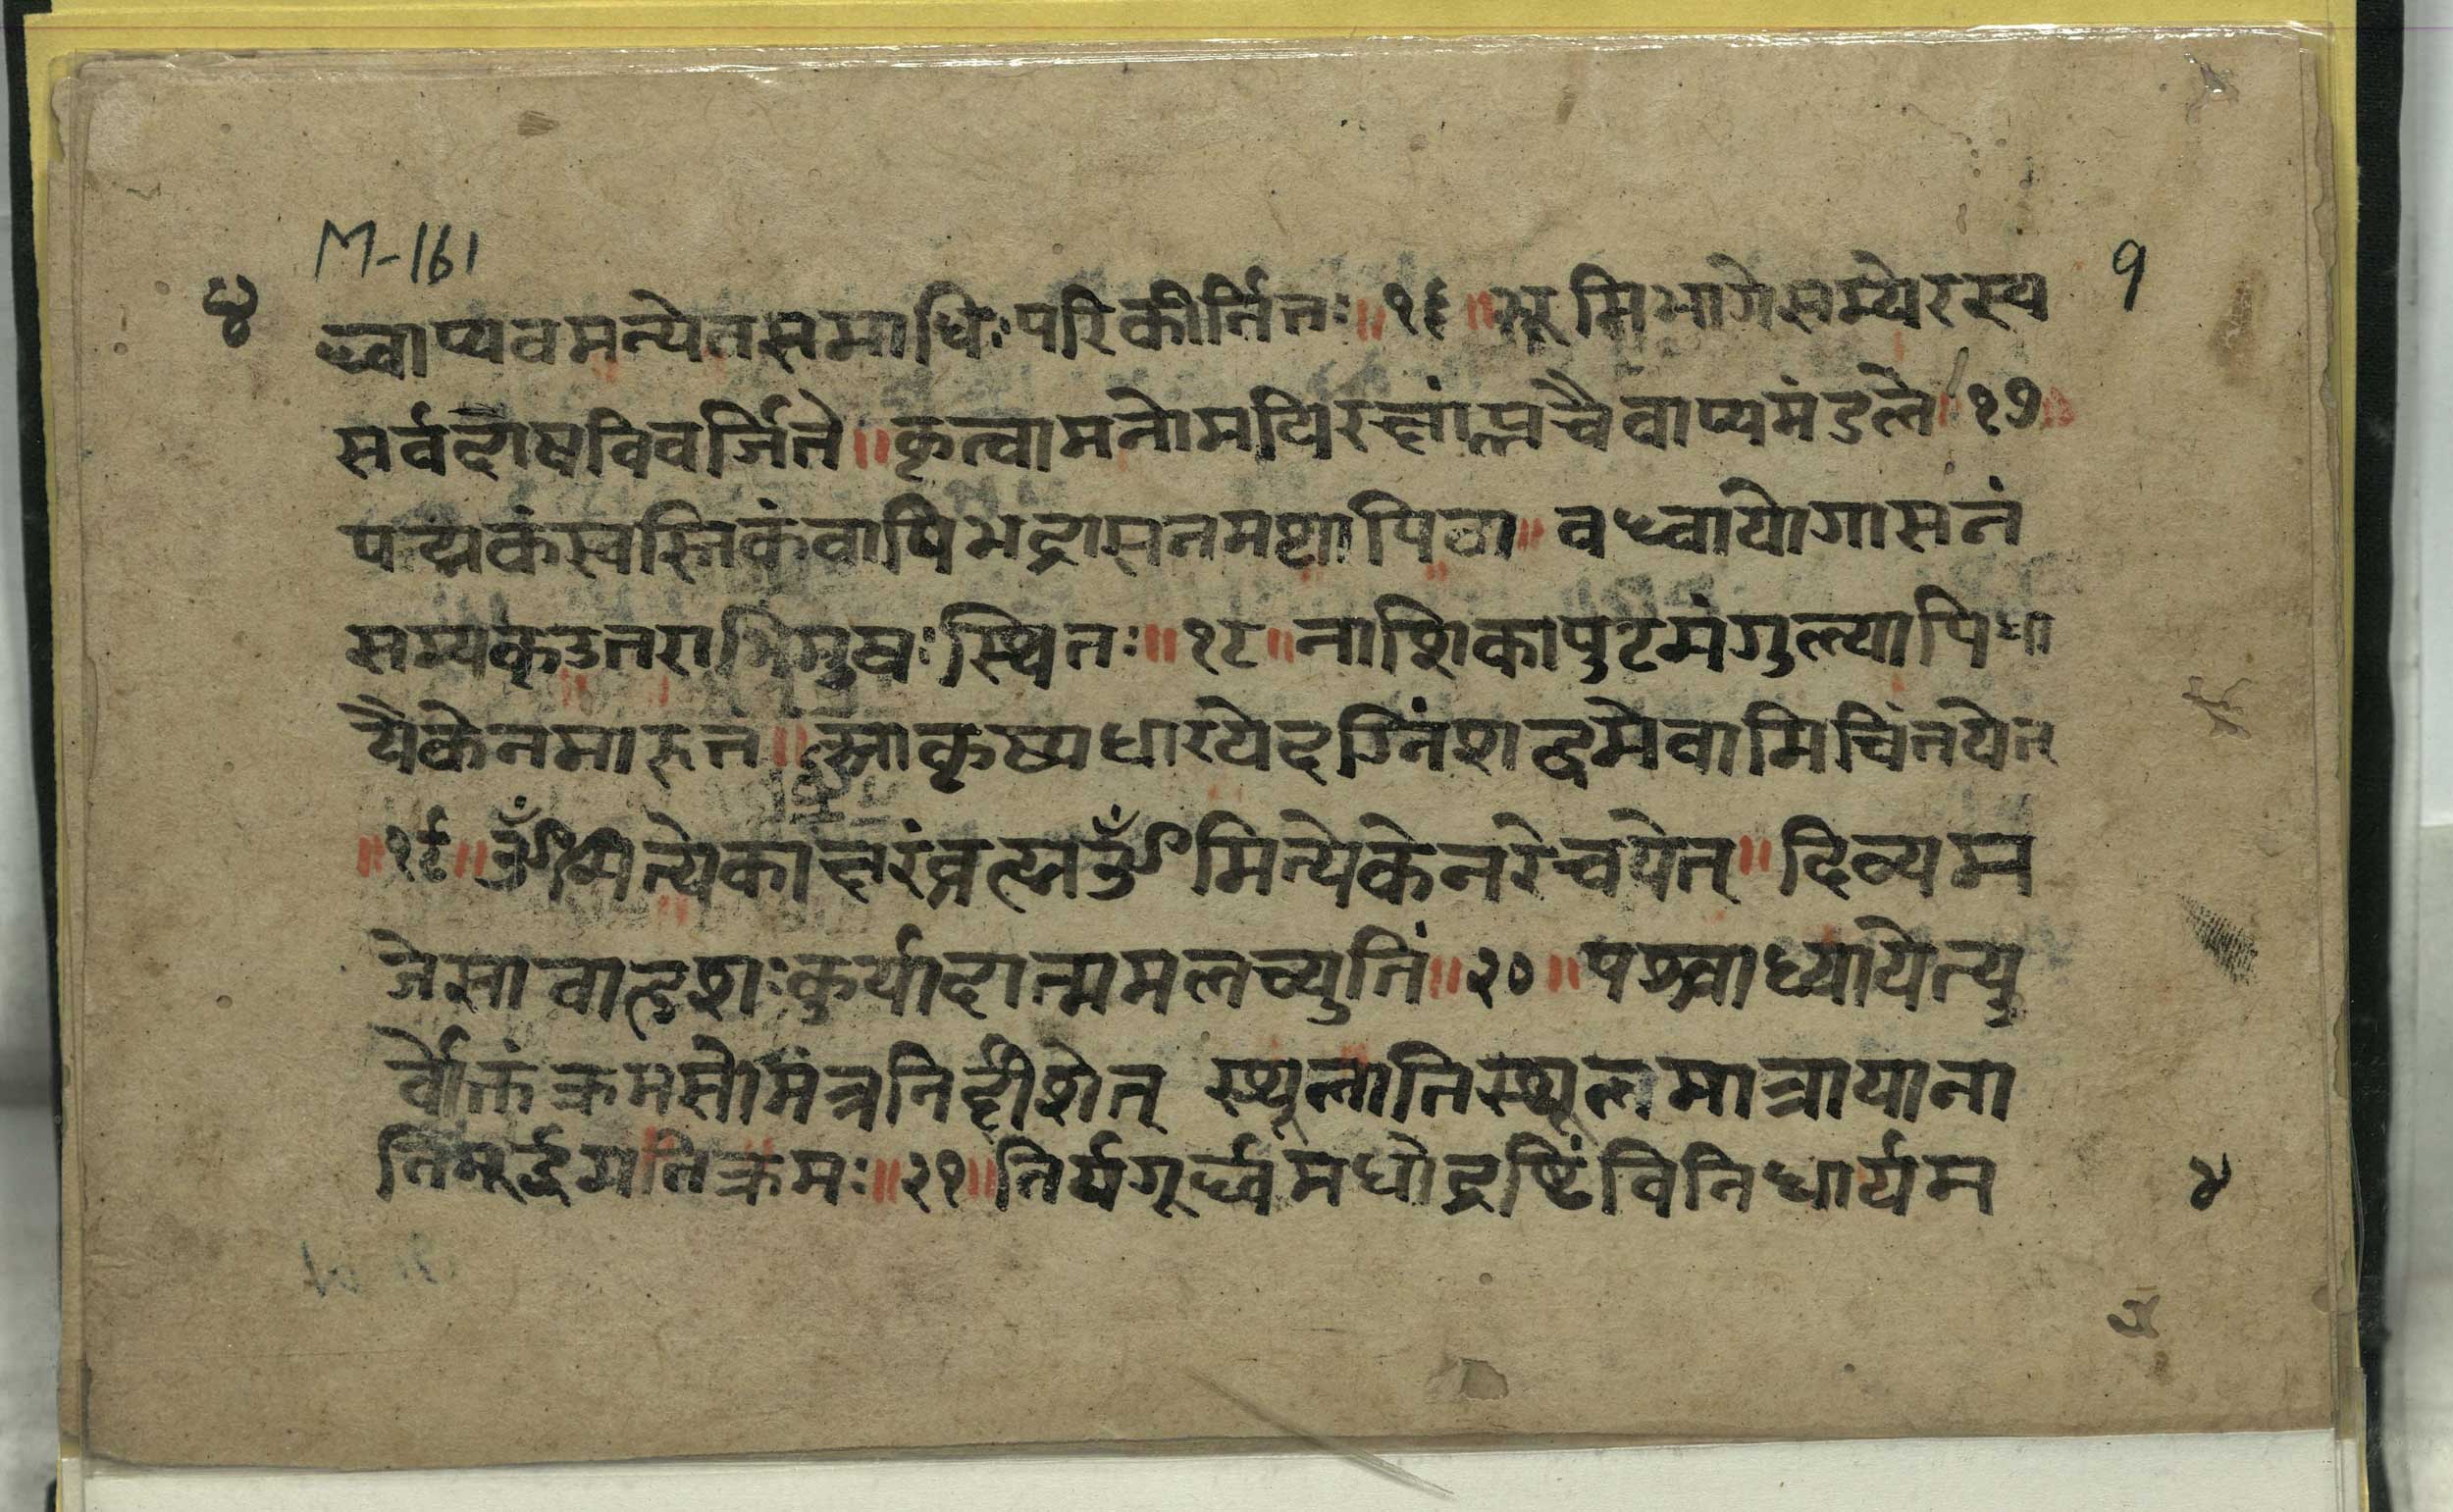 M-161
४ 9
ध्वाप्यवमन्येतसमाधिःपरिकीर्त्तितः॥१६॥भूमिभागेसम्येरस्य
सर्वदोषविवर्जिते॥कृत्वामनोमयिरक्षांप्लचैवाप्यमंडले॥१७॥
पद्मकंस्वस्तिकंवापिभद्रासनमष्टापिवा॥वध्वायोगासनं
सम्यक्उत्तराभिमुषःस्थितः॥१८॥नाशिकापुटमंगुल्यापिधा
यैकेनमारुत॥आकृष्यधारयेदग्निंशद्वमेवामिचिंतयेत्
॥१९॥ॐमित्येकाक्षरंब्रह्मॐमित्येकेनरेचयेत्॥दिव्यम
त्रेसावात्दशःकुर्यादात्ममलच्युतिं॥२०॥पश्वाध्यायेत्यु
र्वोक्तंक्रमसोमंत्रनिर्द्दीशेत् स्थुलातिस्थूलमात्रायाना
तिमूर्द्धमतिक्रमः॥२१॥तिर्यगूर्ध्वमधोद्रष्टिंविनिधार्यम
४